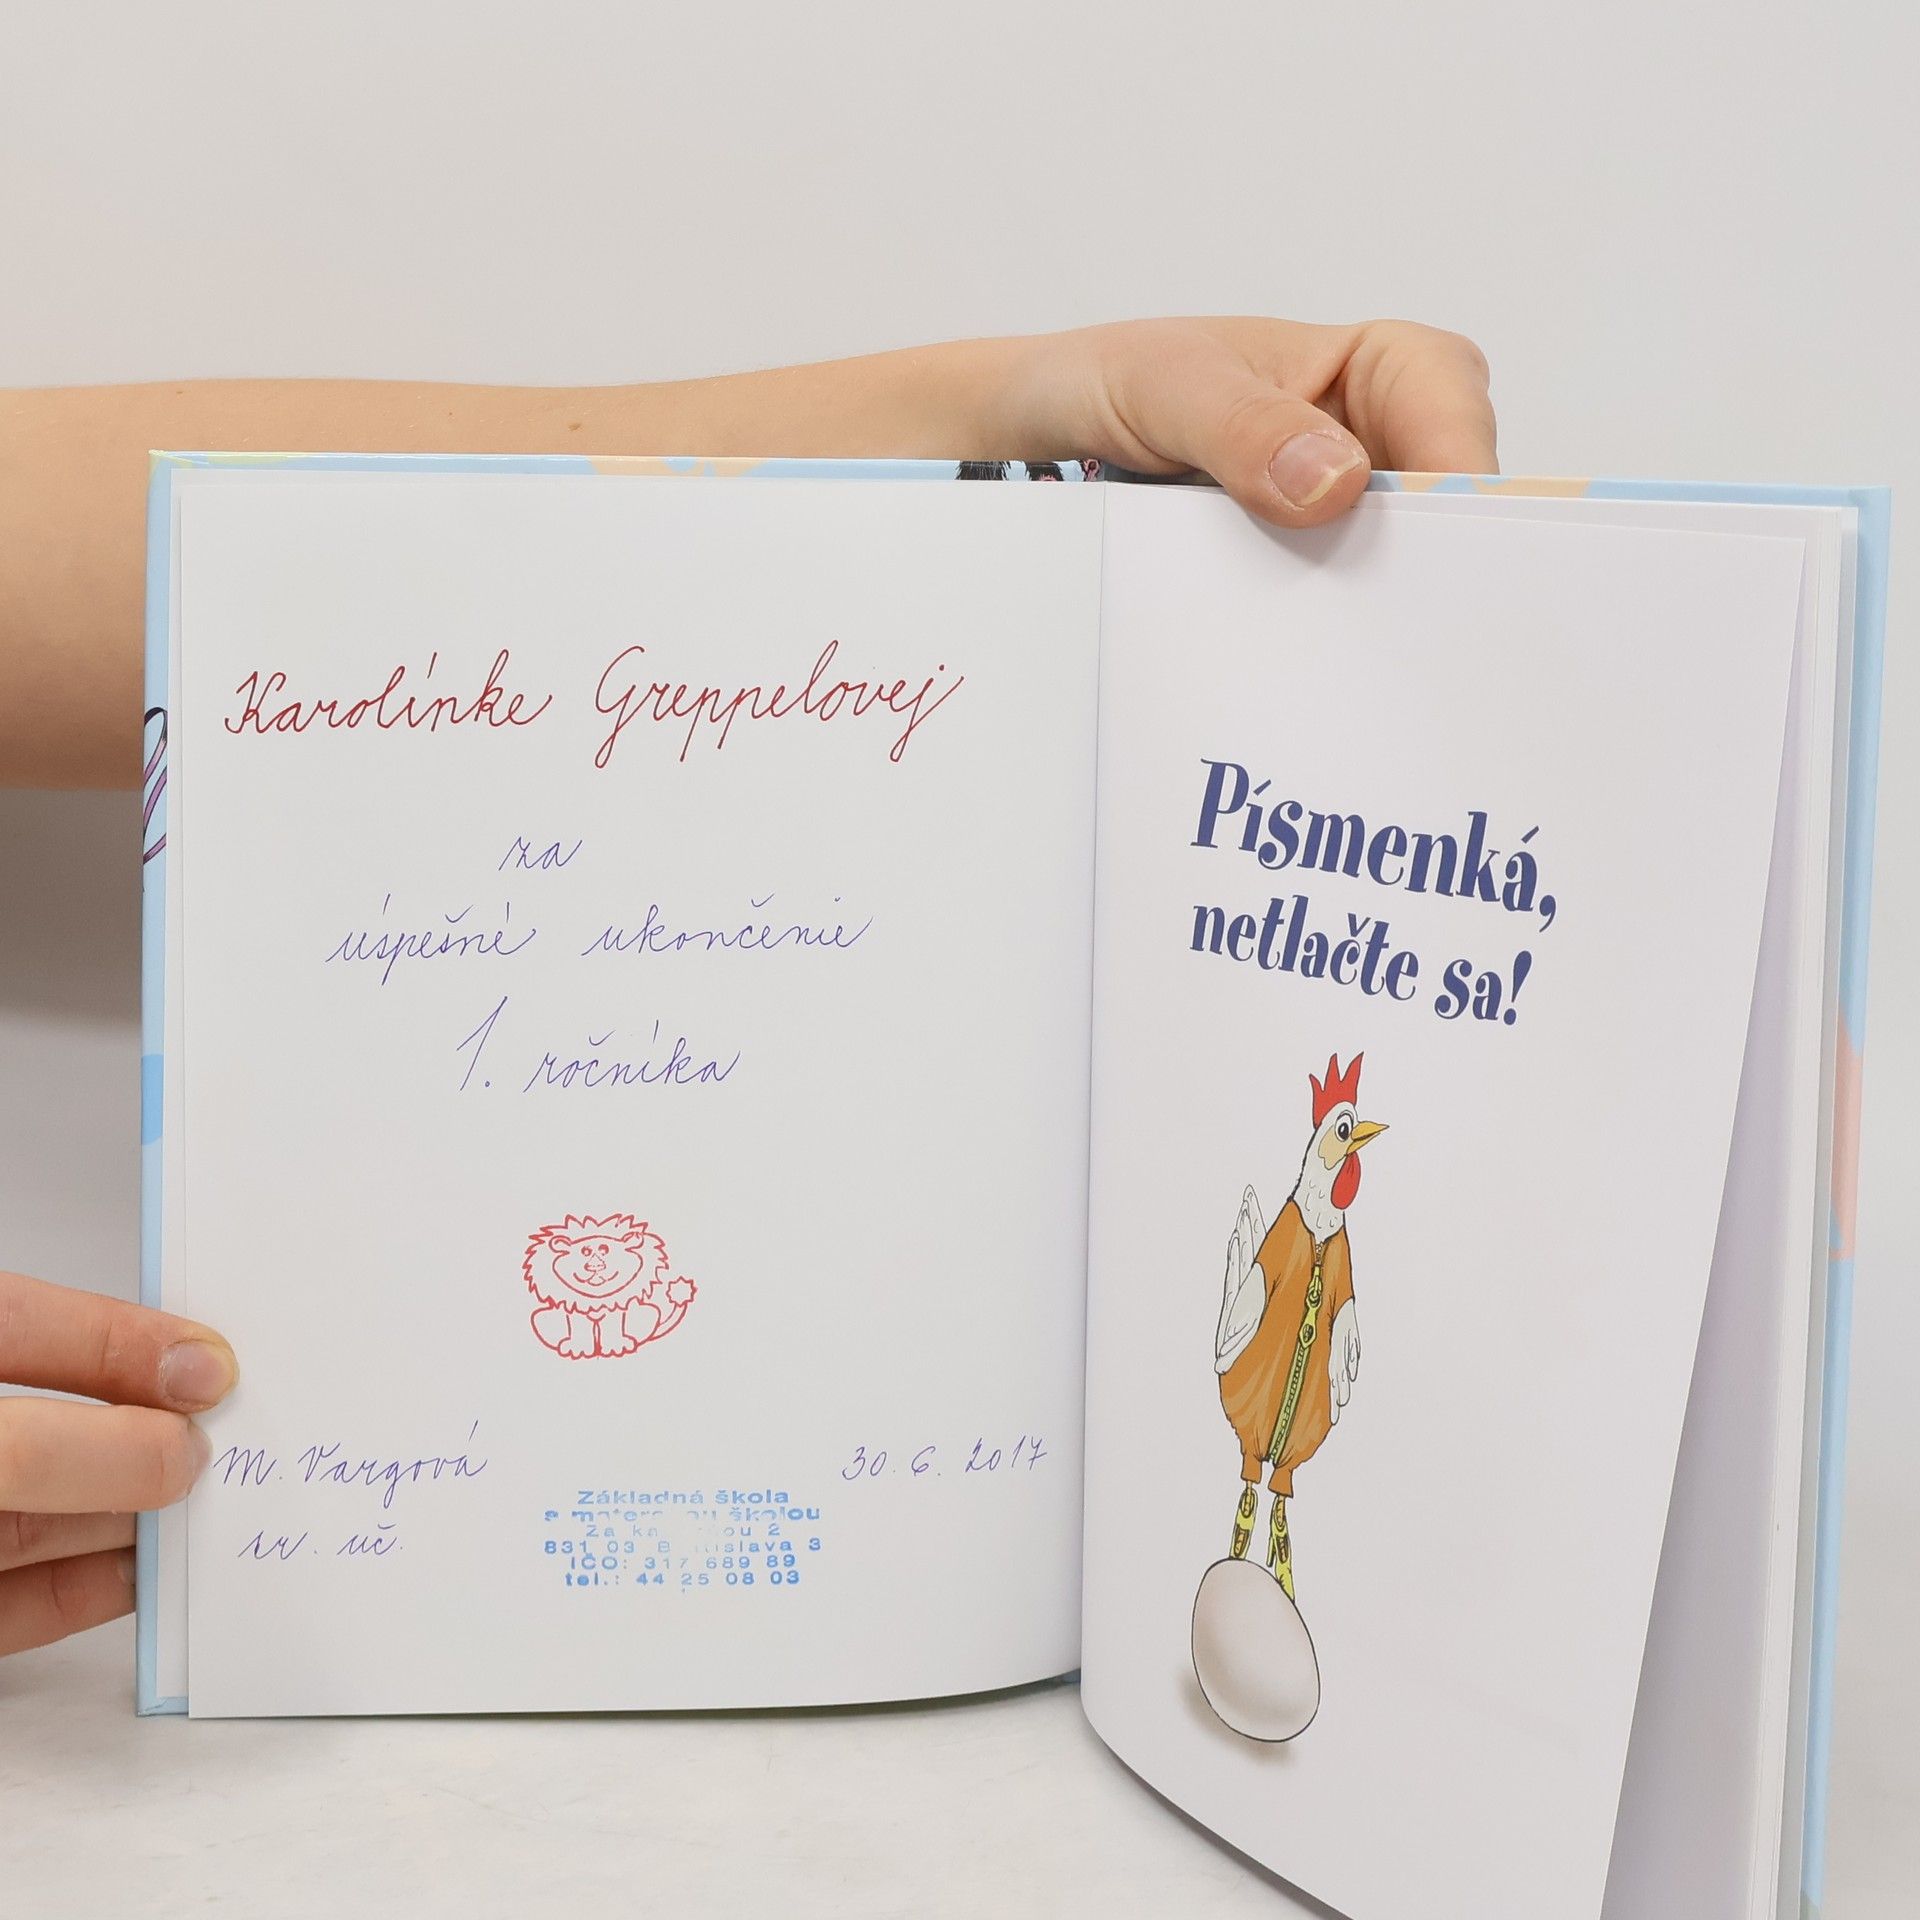 Karolínke Greppelovej
za
úspešné ukončenie
1. ročníka
M. Vargová
tr. uč.
30. 6. 2017
Základná škola
škola
Za 2
831 03 3
IČO: 317 689 89
tel.: 44 25 08 03
Písmenká,
netlačte sa!